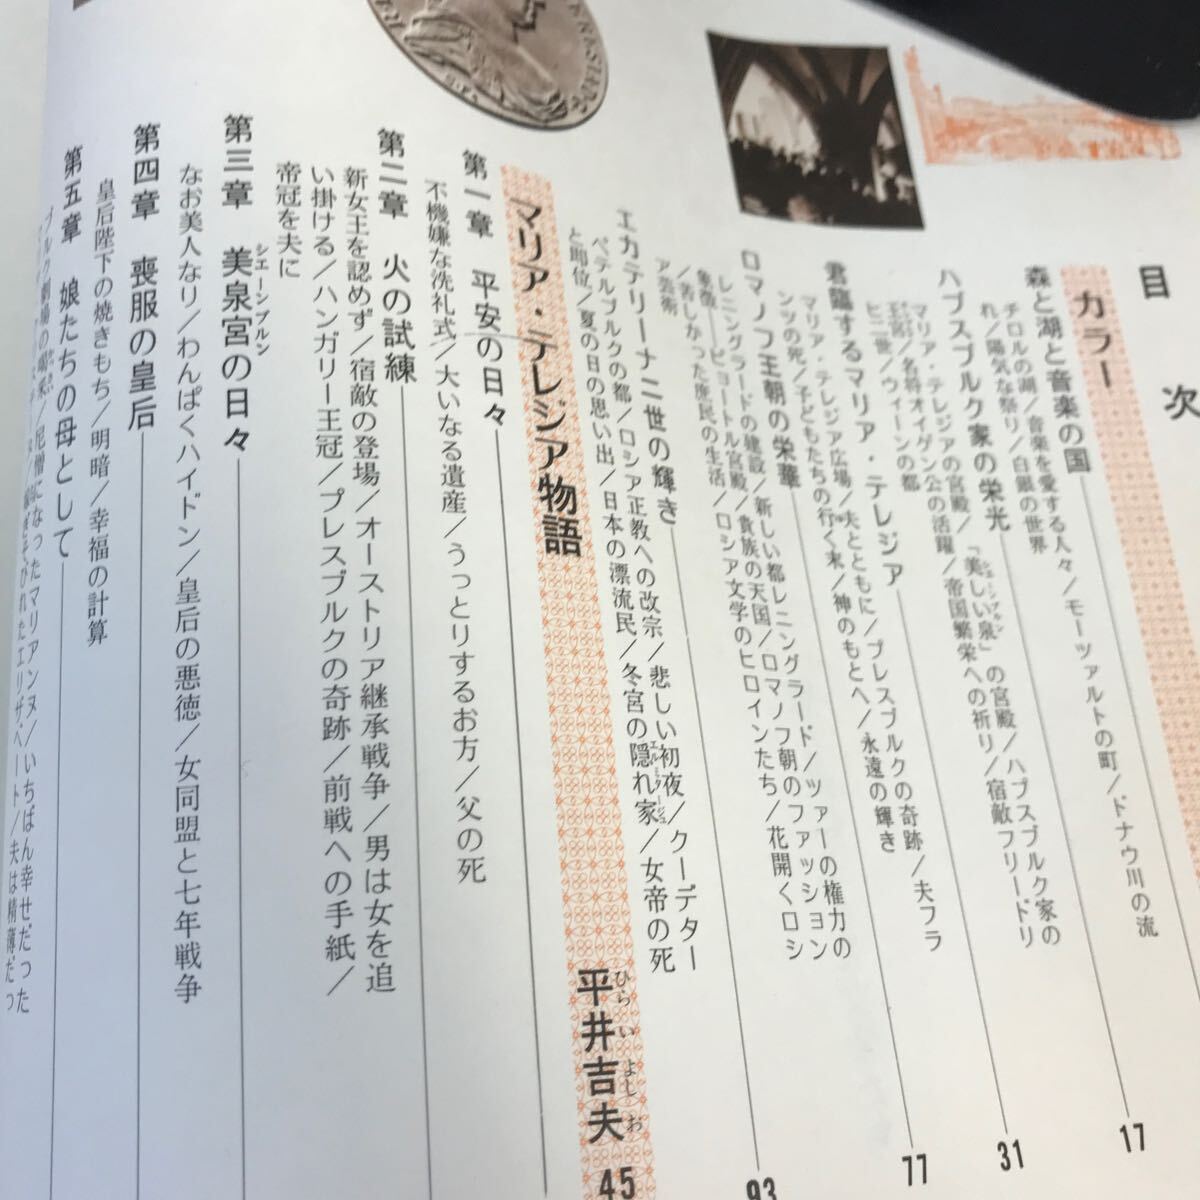 目次
カラー
森と湖と音楽の国 17
チロルの湖/音楽を愛する人々/モーツァルトの町/ドナウ川の流
れ/陽気な祭り/白銀の世界
ハプスブルク家の栄光 31
マリア・テレジアの宮殿/「美しい泉」の宮殿/ハプスブルク家の
シェーンブルン
名将オイゲン公の活躍/帝国繁栄への祈り/宿敵フリードリ
ヒ二世/ウィーンの都
君臨するマリア・テレジア 77
マリア・テレジア広場/夫とともに/プレスブルクの奇跡/夫フラ
ンツの死/子どもたちの行く末/神のもとへ/永遠の輝き
ロマノフ王朝の栄華 93
レニングラードの建設/新しい都レニングラード/ツァーの権力の
象徴―ピョートル宮殿/貴族の天国/ロマノフ朝のファッション
/苦しかった庶民の生活/ロシア文学のヒロインたち/花開くロシ
ア芸術
エカテリーナ二世の輝き
ペテルブルクの都/ロシア正教への改宗/悲しい初夜/クーデター
と即位/夏の日の思い出/日本の漂流民/冬宮の隠れ家/女帝の死
エルミタージュ
マリア・テレジア物語 平井吉夫 45
ひらいよしお
第一章 平安の日々
不機嫌な洗礼式/大いなる遺産/うっとりするお方/父の死
第二章 火の試練
新女王を認めず/宿敵の登場/オーストリア継承戦争/男は女を追
い掛ける/ハンガリー王冠/プレスブルクの奇跡/前戦への手紙/
帝冠を夫に
第三章 美泉宮の日々
シエーンブルン
なお美人なり/わんぱくハイドン/皇后の悪徳/女同盟と七年戦争
第四章 喪服の皇后
皇后陛下の焼きもち/明暗/幸福の計算
第五章 娘たちの母として
ブルク劇場の喝采/尼僧になったマリアンヌ/いちばん幸せだった
エリザベート/夫は精薄だっ